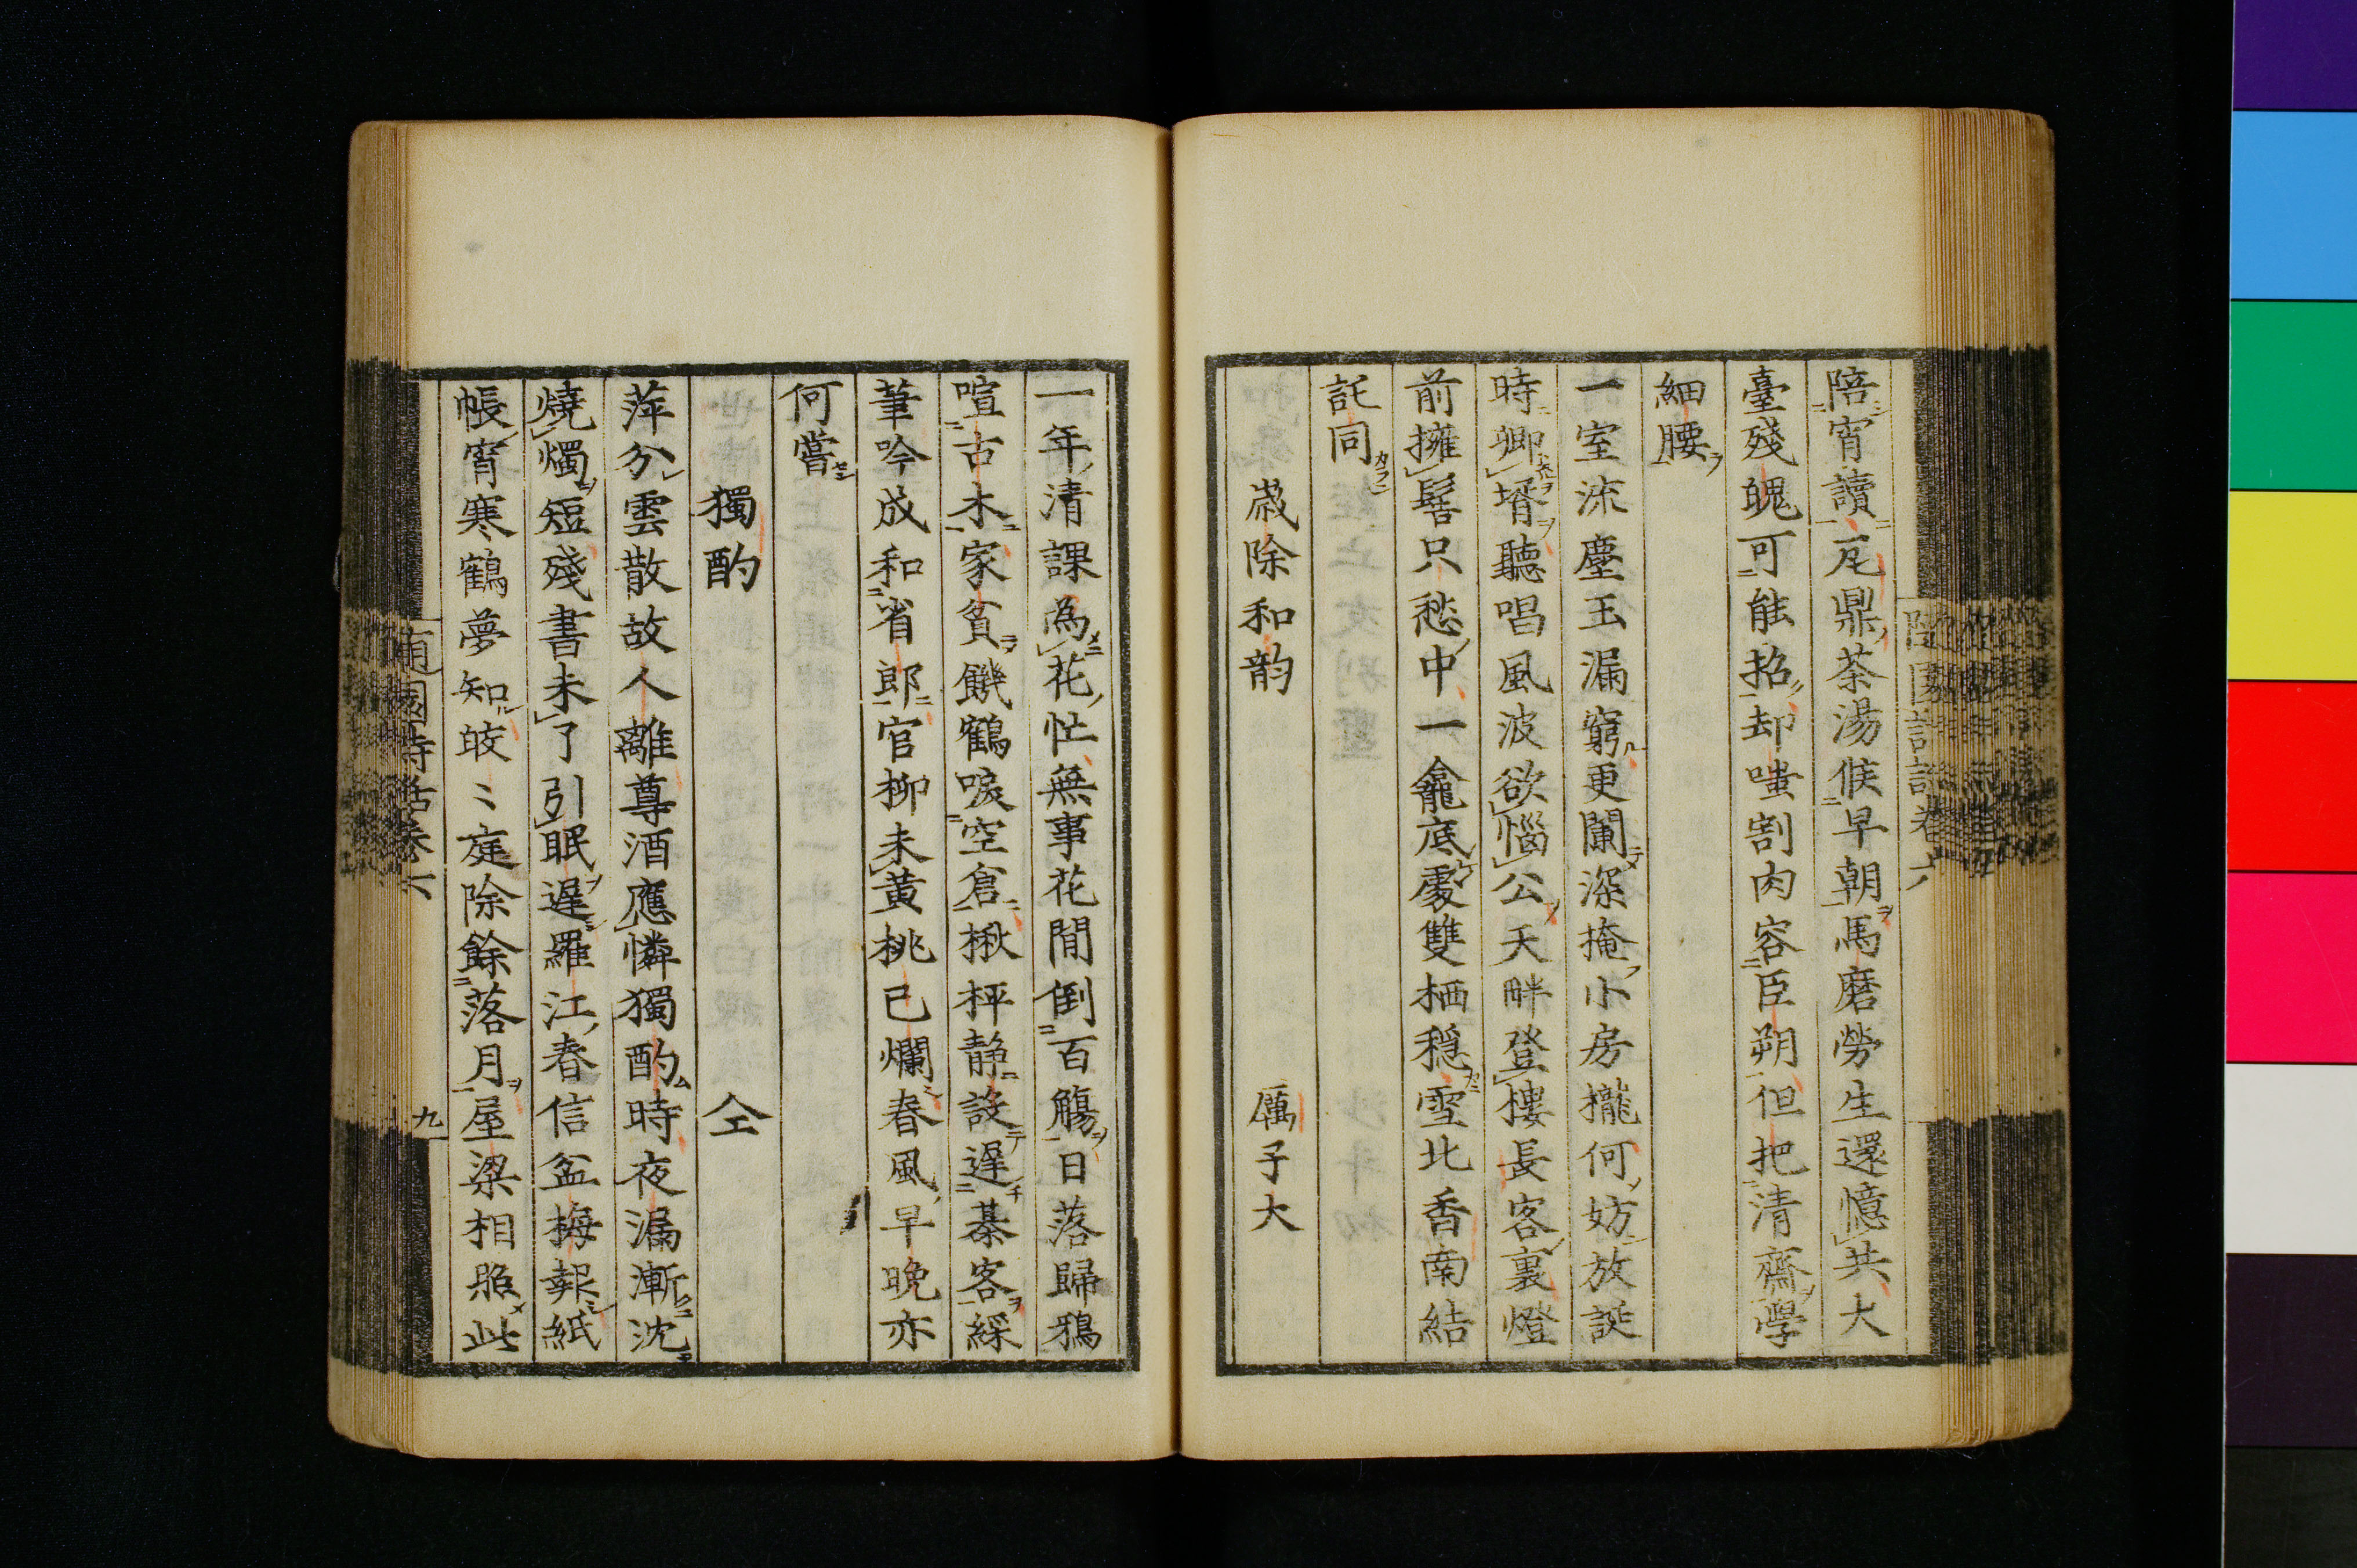 陪宵讀一尨鼎茶湯候早朝馬磨勞生還憶共大
臺殘魄可能招却嗤割肉容臣朔但把清齋學
細腰
一室流塵玉漏窮更闌深掩小房攏何妨放誕
時卿壻聽唱風波欲惱公天畔登樓長客裏燈
前擁髻只愁中一龕底處雙栖穏雪北香南結
託同
歲除和韵 厲子大
一年清課為花忙無事花間倒百觴日落歸鴉
喧古木家貧饑鶴唳空倉楸枰静設遲棊客綵
筆吟成和省郎官柳未黄桃已爛春風早晚亦
何嘗
獨酌 仝
萍分雲散故人離尊酒應憐獨酌時夜漏漸沈
燒燭短殘書未了引眠遲羅江春信盆梅報紙
帳宵寒鶴夢知皎〻庭除餘落月屋梁相照此
九